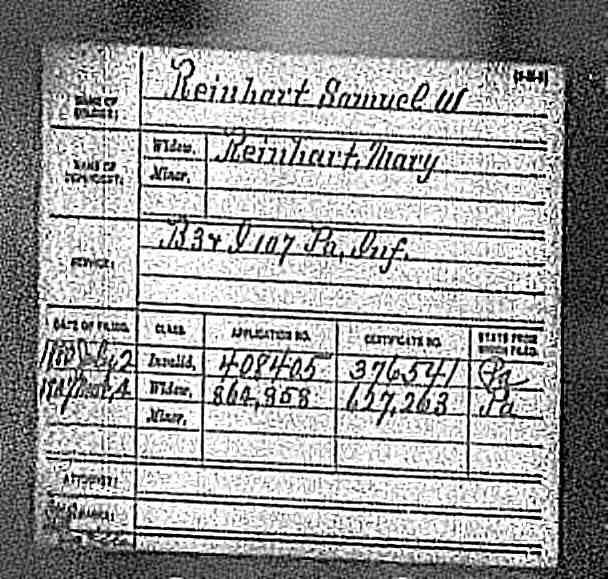 (3-1081)
NAME OF SOLDIER: Reinhart Samuel W
NAME OF DEPENDENT: Widow, Reinhart, Mary
Minor,
SERVICE: B 34 & I 107 Pa. Inf.
DATE OF FILING. CLASS. APPLICATION NO. CERTIFICATE NO. STATE FROM WHICH FILED.
Invalid, 408405 376541 Pa
Widow, 864,858 627,263 Pa
Minor,
ATTORNEY:
REMARKS: